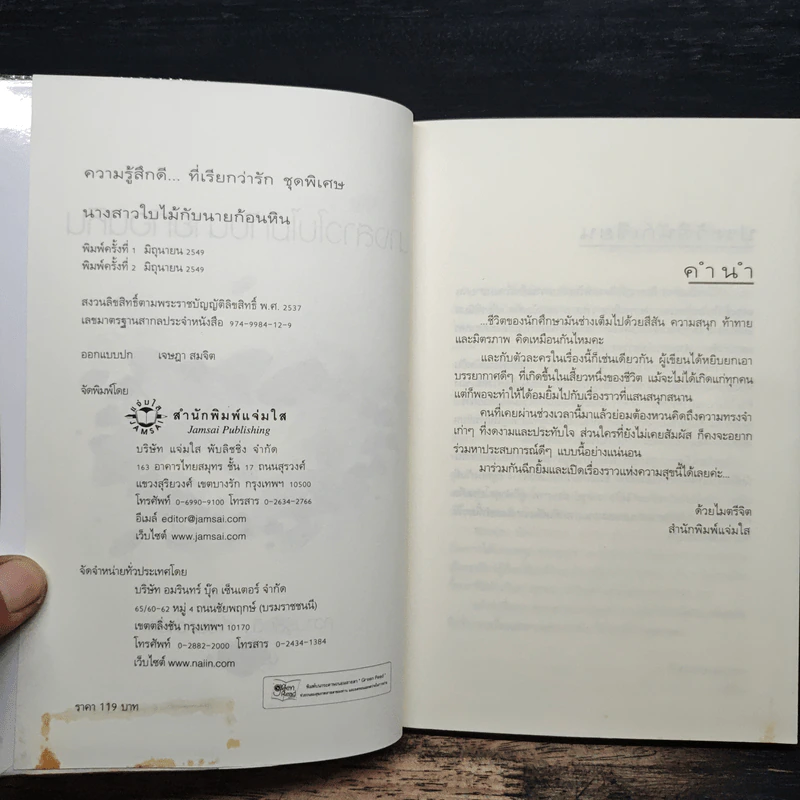 ความรู้สึกดี... ที่เรียกว่ารัก ชุดพิเศษ
นางสาวใบไม้กับนายก้อนหิน
พิมพ์ครั้งที่ 1 มิถุนายน 2549
พิมพ์ครั้งที่ 2 มิถุนายน 2549
สงวนลิขสิทธิ์ตามพระราชบัญญัติลิขสิทธิ์ พ.ศ. 2537
เลขมาตรฐานสากลประจำหนังสือ 974-9984-12-9
ออกแบบปก เจษฎา สมจิต
จัดพิมพ์โดย
แจ่มใส
JAMSAI
สำนักพิมพ์แจ่มใส
Jamsai Publishing
บริษัท แจ่มใส พับลิชชิ่ง จำกัด
163 อาคารไทยสมุทร ชั้น 17 ถนนสุรวงศ์
แขวงสุริยวงศ์ เขตบางรัก กรุงเทพฯ 10500
โทรศัพท์ 0-6990-9100 โทรสาร 0-2634-2766
อีเมล์ editor@jamsai.com
เว็บไซต์ www.jamsai.com
จัดจำหน่ายทั่วประเทศโดย
บริษัท อมรินทร์ บุ๊ค เซ็นเตอร์ จำกัด
65/60-62 หมู่ 4 ถนนชัยพฤกษ์ (บรมราชชนนี)
เขตตลิ่งชัน กรุงเทพฯ 10170
โทรศัพท์ 0-2882-2000 โทรสาร 0-2434-1384
เว็บไซต์ www.naiin.com
Green Read
ราคา 119 บาท
คำนำ
...ชีวิตของนักศึกษามันช่างเต็มไปด้วยสีสัน ความสนุก ท้าทาย
และมิตรภาพ คิดเหมือนกันไหมคะ
และกับตัวละครในเรื่องนี้ก็เช่นเดียวกัน ผู้เขียนได้หยิบยกเอา
บรรยากาศดีๆ ที่เกิดขึ้นในเสี้ยวหนึ่งของชีวิต แม้จะไม่ได้เกิดแก่ทุกคน
แต่ก็พอจะทำให้ได้อมยิ้มไปกับเรื่องราวที่แสนสนุกสนาน
คนที่เคยผ่านช่วงเวลานี้มาแล้วย่อมต้องหวนคิดถึงความทรงจำ
เก่าๆ ที่งดงามและประทับใจ ส่วนใครที่ยังไม่เคยสัมผัส ก็คงจะอยาก
ร่วมหาประสบการณ์ดีๆ แบบนี้อย่างแน่นอน
มาร่วมกันฉีกยิ้มและเปิดเรื่องราวแห่งความสุขนี้ได้เลยค่ะ...
ด้วยไมตรีจิต
สำนักพิมพ์แจ่มใส